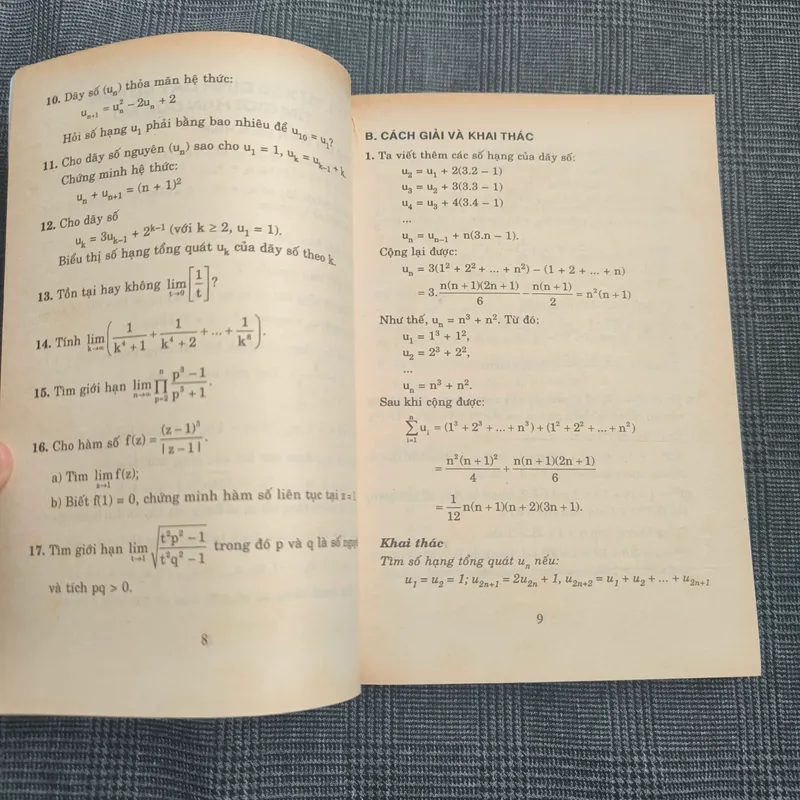 10. Dãy số (uₙ) thỏa mãn hệ thức:
uₙ₊₁ = uₙ² – 2uₙ + 2
Hỏi số hạng u₁ phải bằng bao nhiêu để u₁₀ = u₁?
11. Cho dãy số nguyên (uₙ) sao cho u₁ = 1, uₖ = uₖ₋₁ + k.
Chứng minh hệ thức:
uₙ + uₙ₊₁ = (n + 1)²
12. Cho dãy số
uₖ = 3uₖ₋₁ + 2ᵏ⁻¹ (với k ≥ 2, u₁ = 1).
Biểu thị số hạng tổng quát uₖ của dãy số theo k.
13. Tồn tại hay không lim_{t→0} [1/t]?
14. Tính lim_{k→∞} (1/(k⁴ + 1) + 1/(k⁴ + 2) + ... + 1/k⁸).
15. Tìm giới hạn lim_{n→∞} ∏_{p=2}^{n} (p³ – 1)/(p³ + 1).
16. Cho hàm số f(z) = (z – 1)³/| z – 1 |.
a) Tìm lim_{z→1} f(z);
b) Biết f(1) = 0, chứng minh hàm số liên tục tại z = 1
17. Tìm giới hạn lim_{t→1} √((t²p² – 1)/(t²q² – 1)) trong đó p và q là số
và tích pq > 0.
8
B. CÁCH GIẢI VÀ KHAI THÁC
1. Ta viết thêm các số hạng của dãy số:
u₂ = u₁ + 2(3.2 – 1)
u₃ = u₂ + 3(3.3 – 1)
u₄ = u₃ + 4(3.4 – 1)
...
uₙ = uₙ₋₁ + n(3.n – 1).
Cộng lại được:
uₙ = 3(1² + 2² + ... + n²) – (1 + 2 + ... + n)
= 3.n(n + 1)(2n + 1)/6 – n(n + 1)/2 = n²(n + 1)
Như thế, uₙ = n³ + n². Từ đó:
u₁ = 1³ + 1²,
u₂ = 2³ + 2²,
...
uₙ = n³ + n².
Sau khi cộng được:
∑_{i=1}^{n} uᵢ = (1³ + 2³ + ... + n³) + (1² + 2² + ... + n²)
= n²(n + 1)²/4 + n(n + 1)(2n + 1)/6
= 1/12 n(n + 1)(n + 2)(3n + 1).
Khai thác
Tìm số hạng tổng quát uₙ nếu:
u₁ = u₂ = 1; u₂ₙ₊₁ = 2u₂ₙ + 1, u₂ₙ₊₂ = u₁ + u₂ + ... + u₂ₙ₊₁
9